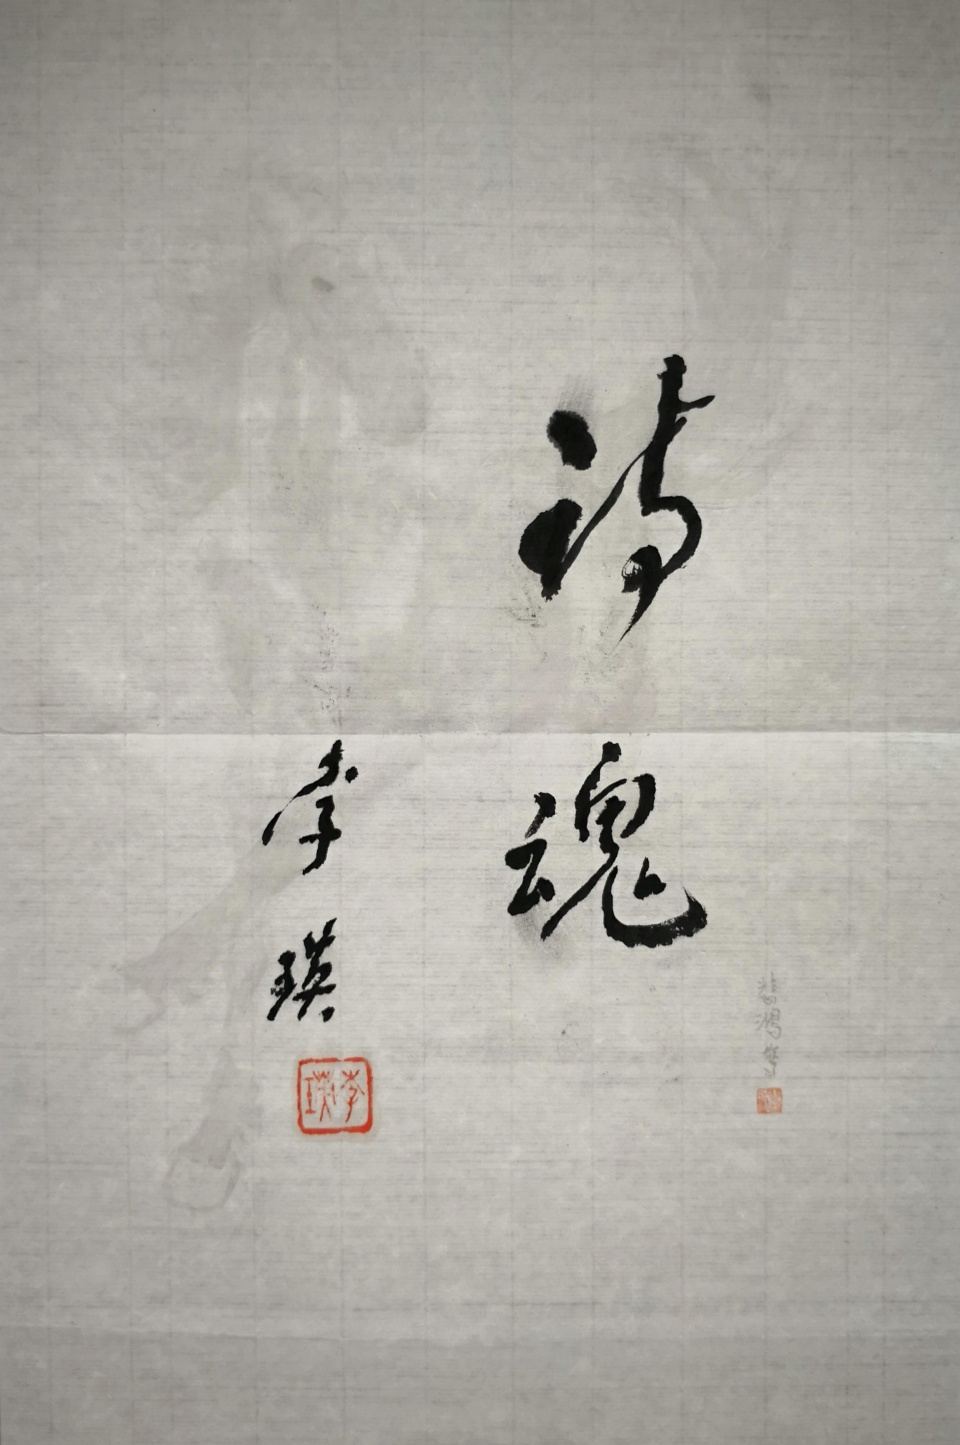 詩魂
李瑛
李瑛
悲鴻